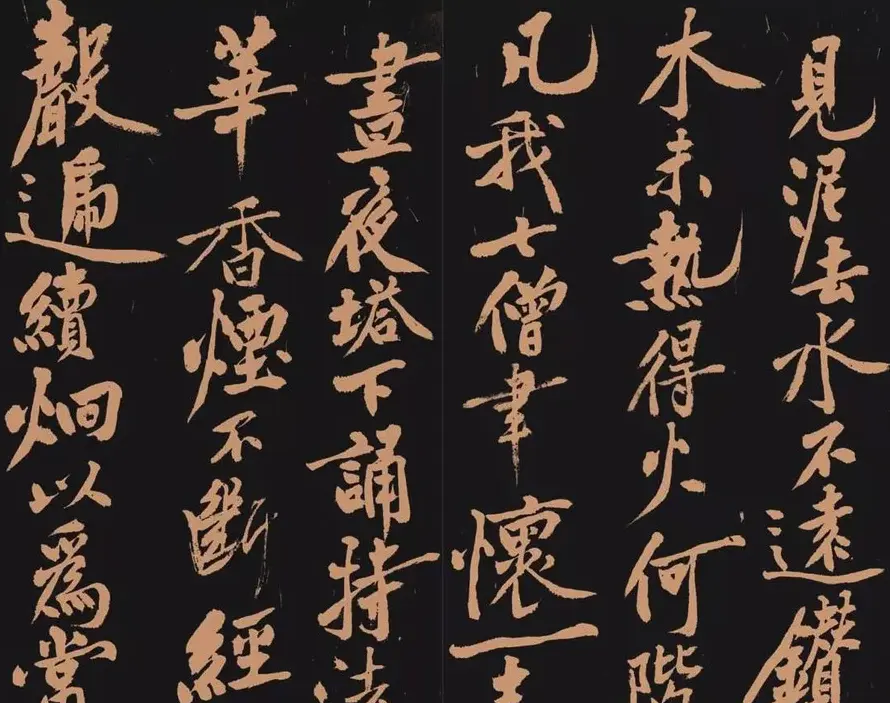 見泥去水不遠鑽
木未熱得火何階
凡我七僧聿懷一
晝夜塔下誦持法
華香煙不斷經
聲遍續炯以為常